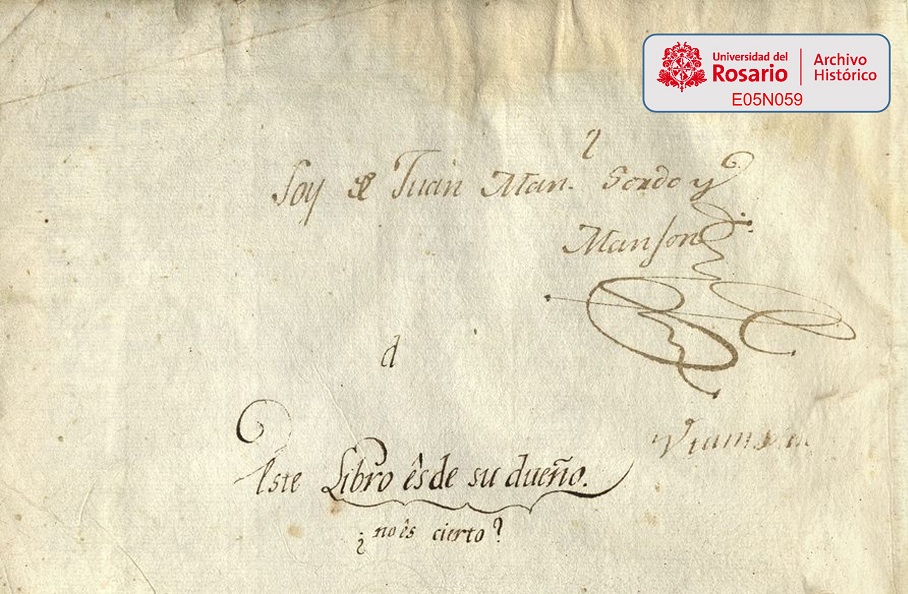 Universidad del
Rosario
Archivo
Histórico
E05N059
Soy de Juan Man. Sordo y
Manson
d
Este Libro ês de su dueño.
¿no ês cierto?